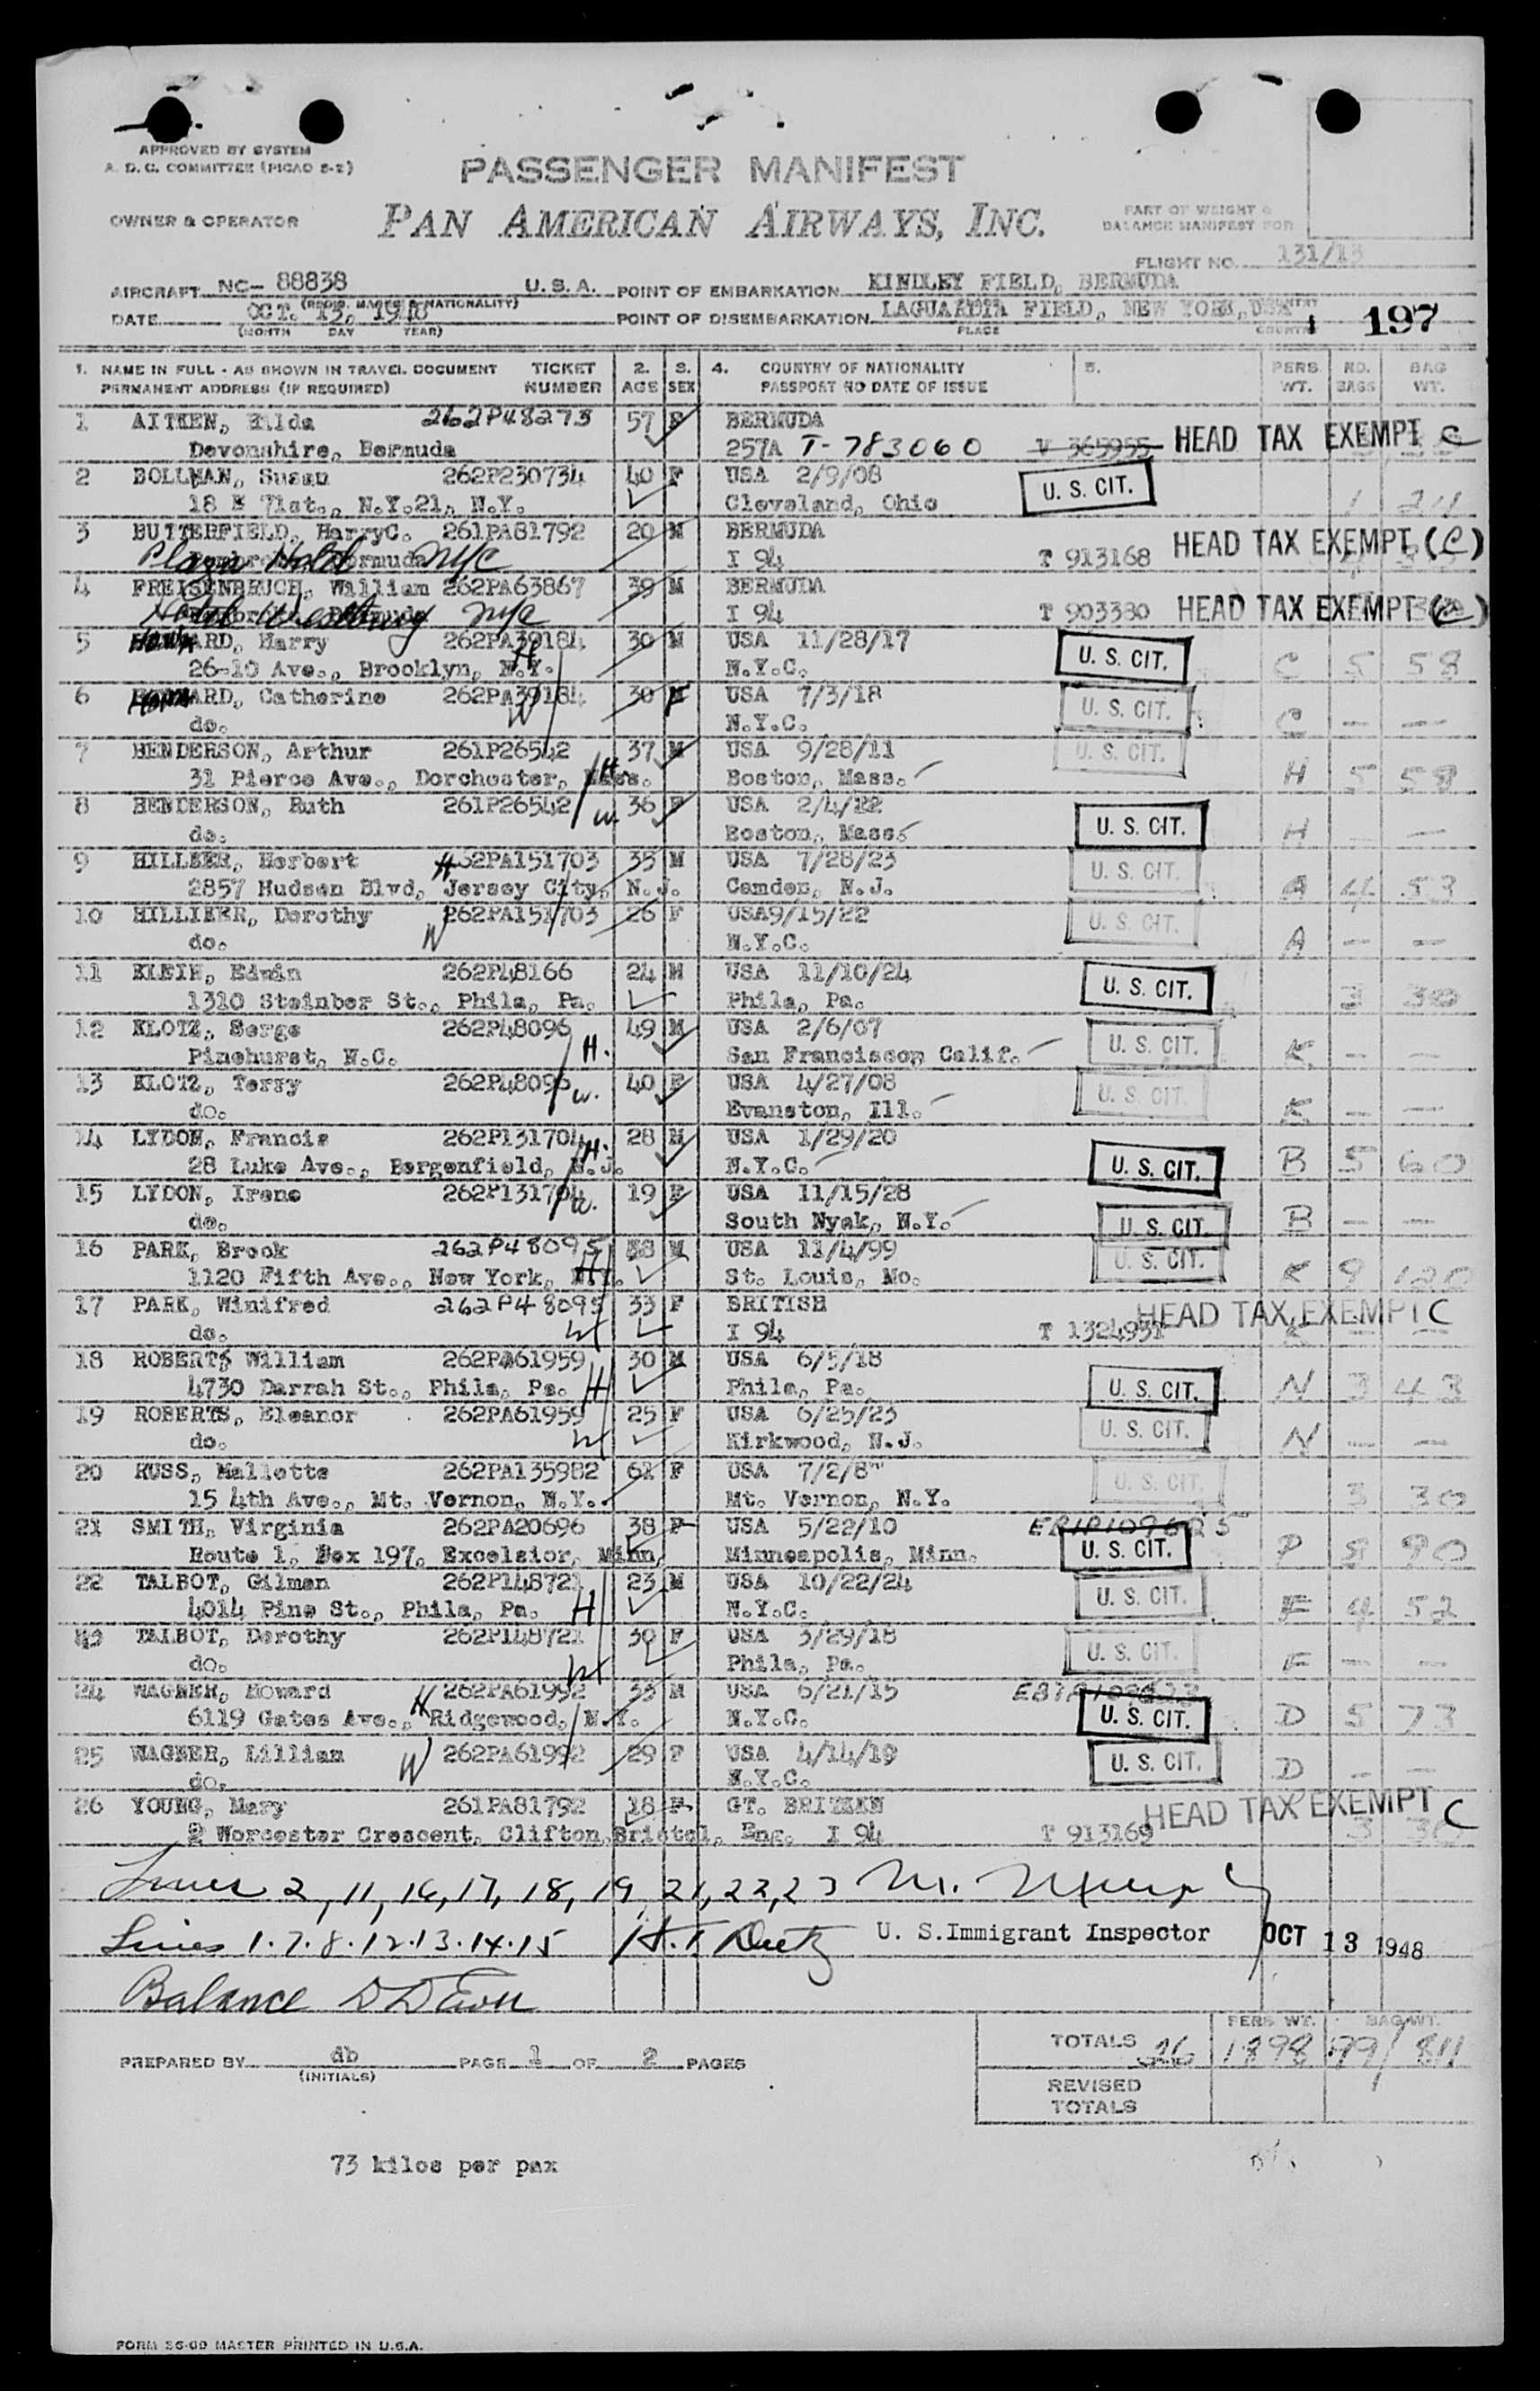 APPROVED BY SYSTEM
A. D. C. COMMITTEE (PICAO 8-2)
PASSENGER MANIFEST
OWNER & OPERATOR PAN AMERICAN AIRWAYS, INC.
PART OF WEIGHT &
BALANCE MANIFEST FOR
FLIGHT NO. 131/13
AIRCRAFT NC- 88838 U.S.A. POINT OF EMBARKATION KINDLEY FIELD, BERMUDA
(REGIS. MARKS & NATIONALITY)
DATE OCT. 13, 1948 POINT OF DISEMBARKATION LAGUARDIA FIELD, NEW YORK, USA 197
(MONTH DAY YEAR) PLACE COUNTRY
1. NAME IN FULL - AS SHOWN IN TRAVEL DOCUMENT TICKET 2. 3. 4. COUNTRY OF NATIONALITY 5. PERS. NO. BAG
PERMANENT ADDRESS (IF REQUIRED) NUMBER AGE SEX PASSPORT NO DATE OF ISSUE WT. BAGS WT.
1 AITKEN, Hilda 262P48273 57 F BERMUDA
Devonshire, Bermuda 257A T-783060 V 365955 HEAD TAX EXEMPT C
2 BOLLMAN, Susan 262P230734 40 F USA 2/9/08
18 E 71st., N.Y.21, N.Y. Cleveland, Ohio U. S. CIT. 1 24
3 BUTTERFIELD, HarryC. 261PA81792 20 M BERMUDA
Plaza Hotel NYC I 94 T 913168 HEAD TAX EXEMPT (C)
4 FREISENBRUCH, William 262PA63867 39 M BERMUDA
Hotel Westbury NYC I 94 T 903380 HEAD TAX EXEMPT (C)
5 HOWARD, Harry 262PA39184 30 M USA 11/28/17
26-10 Ave., Brooklyn, N.Y. H N.Y.C. U. S. CIT. C 5 58
6 HOWARD, Catherine 262PA39184 30 F USA 7/3/18
do. W N.Y.C. U. S. CIT. C — —
7 HENDERSON, Arthur 261P26542 37 M USA 9/28/11
31 Pierce Ave., Dorchester, Mass. H Boston, Mass. U. S. CIT. H 5 58
8 HENDERSON, Ruth 261P26542 W. 36 F USA 2/4/12
do. Boston, Mass. U. S. CIT. H — —
9 HILLIER, Herbert H 262PA151703 35 M USA 7/28/23
2857 Hudson Blvd, Jersey City, N.J. Camden, N.J. U. S. CIT. A 4 53
10 HILLIER, Dorothy 262PA151703 26 F USA9/15/22
do. W N.Y.C. U. S. CIT. A — —
11 KLEIN, Edwin 262P48166 24 M USA 11/10/24
1310 Steinber St., Phila, Pa. Phila, Pa. U. S. CIT. 3 30
12 KLOTZ, Serge 262P48096 49 M USA 2/6/07
Pinehurst, N.C. H. San Franciscop Calif. U. S. CIT. K — —
13 KLOTZ, Terry 262P48096 40 F USA 4/27/08
do. W. Evanston, Ill. U. S. CIT. K — —
14 LYDON, Francis 262P131704 28 M USA 1/29/20
28 Luke Ave., Bergenfield, N.J. H. N.Y.C. U. S. CIT. B 5 60
15 LYDON, Irene 262P131704 19 F USA 11/15/28
do. W. South Nyak, N.Y. U. S. CIT. B — —
16 PARK, Brook 262P48095 M USA 11/4/99
1120 Fifth Ave., New York, N.Y. H St. Louis, Mo. U. S. CIT. K 9 120
17 PARK, Winifred 262P48095 33 F BRITISH
do. W I 94 T 1324931 HEAD TAX EXEMPT C K — —
18 ROBERTS William 262PA61959 30 M USA 6/5/18
4730 Darrah St., Phila, Pa. H Phila, Pa. U. S. CIT. N 3 43
19 ROBERTS, Eleanor 262PA61959 25 F USA 6/25/23
do. W Kirkwood, N.J. U. S. CIT. N — —
20 RUSS, Mallotte 262PA135982 61 F USA 7/2/8
15 4th Ave., Mt. Vernon, N.Y. Mt. Vernon, N.Y. U. S. CIT. 3 30
21 SMITH, Virginia 262PA20696 38 F USA 5/22/10
Route 1, Box 197, Excelsior, Minn, Minneapolis, Minn. U. S. CIT. P 8 90
22 TALBOT, Gilman 262P148721 23 M USA 10/22/24
4014 Pine St., Phila, Pa. H N.Y.C. U. S. CIT. F 4 52
23 TALBOT, Dorothy 262P148721 30 F USA 3/29/18
do. W Phila, Pa. U. S. CIT. F — —
24 WAGNER, Howard 262PA61992 33 M USA 6/21/15
6119 Gates Ave., H Ridgewood, N.Y. N.Y.C. U. S. CIT. D 5 73
25 WAGNER, Lillian W 262PA61992 29 F USA 4/14/19
do. N.Y.C. U. S. CIT. D — —
26 YOUNG, Mary 261PA81792 18 F GT. BRITAIN
2 Worcester Crescent, Clifton,Bristol, Eng. I 94 T 913169 HEAD TAX EXEMPT C 3 30
Lines 2, 11, 16, 17, 18, 19, 21, 22, 23 M.
Lines 1. 7. 8. 12. 13. 14. 15 U. S.Immigrant Inspector OCT 13 1948
Balance
TOTALS 26 1898 811 PERS WT. BAG WT.
PREPARED BY db PAGE 1 OF 2 PAGES
(INITIALS)
REVISED
TOTALS
73 kilos per pax
FORM 36-00 MASTER PRINTED IN U.S.A.